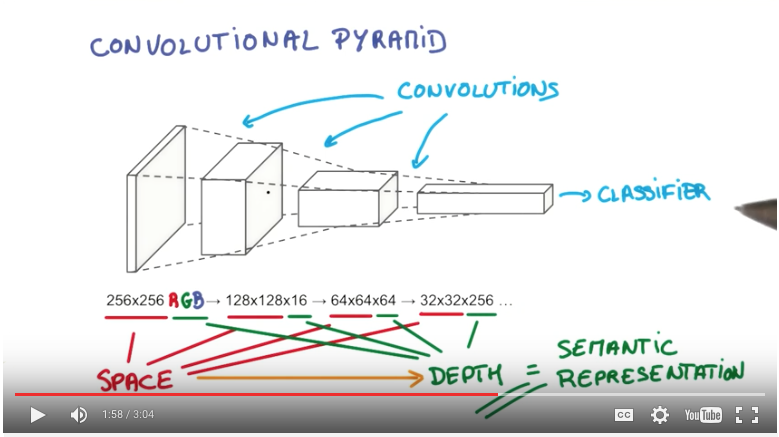 CONVOLUTIONAL PYRAMID
CONVOLUTIONS
CLASSIFIER
256x256 RGB → 128x128x16 → 64x64x64 → 32x32x256 ...
SPACE → DEPTH = SEMANTIC REPRESENTATION
1:58 / 3:04
CC
YouTube